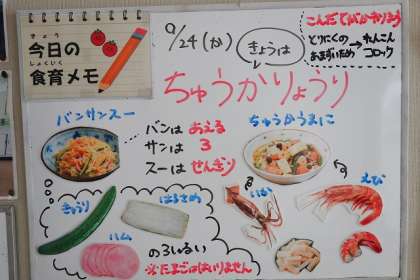 きょう
今日の
しょくいく
食育メモ
9/24(か)
きょうは
ちゅうかりょうり
こんだてがかわりまうす
とりにくの
あまずいため → れんこん
コロッケ
バンサンスー
バンは あえる
サンは 3
スーは せんぎり
ちゅうかうまに
きゅうり
はるさめ
ハム
の3しゅるい
※たまごははいりません
いか
えび